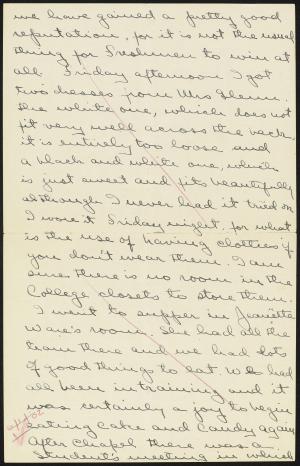 we have gained a pretty good
reputation, for it is not the usual
thing for Freshmen to win at
all. Friday afternoon I got
two dresses from Mrs Glenn.
the white one, which does not
fit very well across the back
it is entirely too loose and
a black and white one, which
is just sweet and fits beautifully
although I never had it tried on
I wore it Friday night, for what
is the use of having clothes if
you don't wear them. I am
sure there is no room in the
College closets to store them.
I went to supper in
Ware's room. She had all the
team there and we had lots
of good things to eat. We had
all been in training and it
was certainly a joy to begin
eating cake and candy again
After Chapel there was a
Student's meeting in which